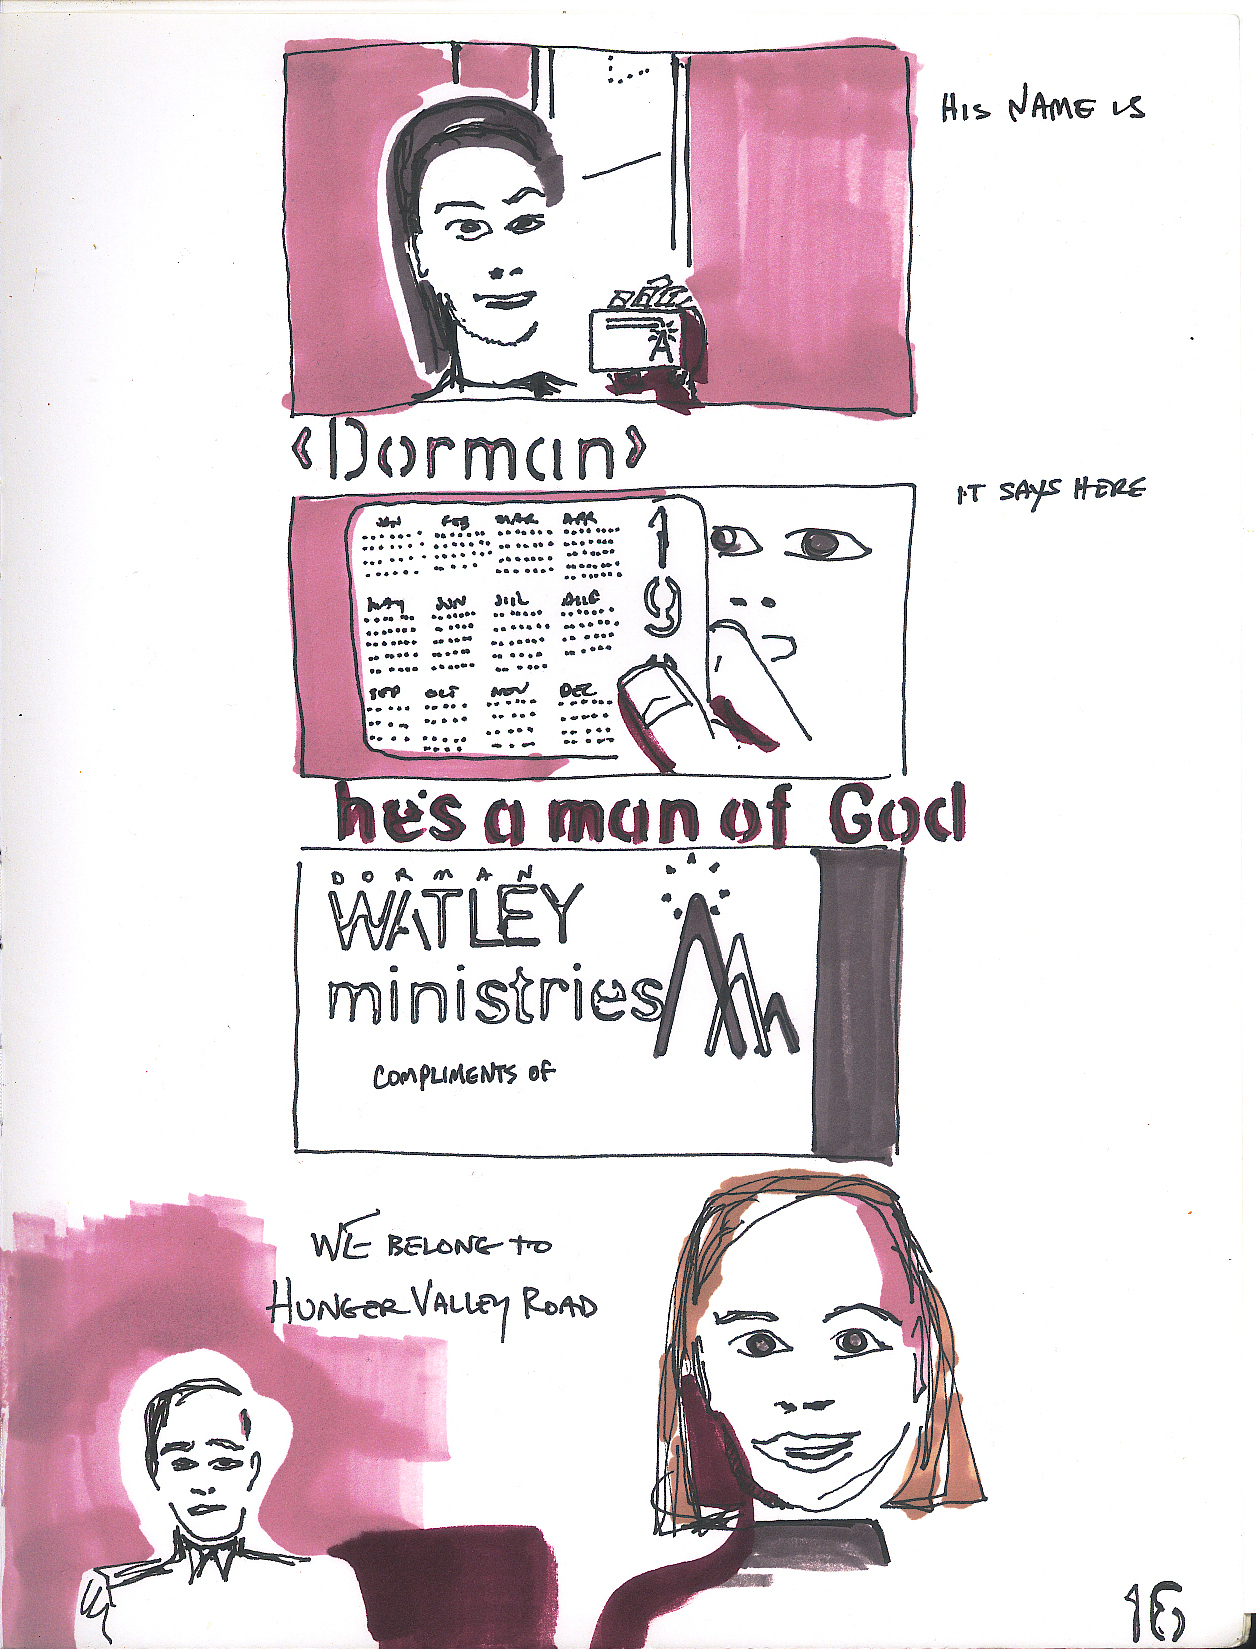 HIS NAME IS
A
‹Dorman›
IT SAYS HERE
JAN FEB MAR APR
MAY JUN JUL AUG
SEP OCT NOV DEC
1
9
he's a man of God
DORMAN
WATLEY
ministries
COMPLIMENTS OF
WE BELONG TO
HUNGER VALLEY ROAD
16